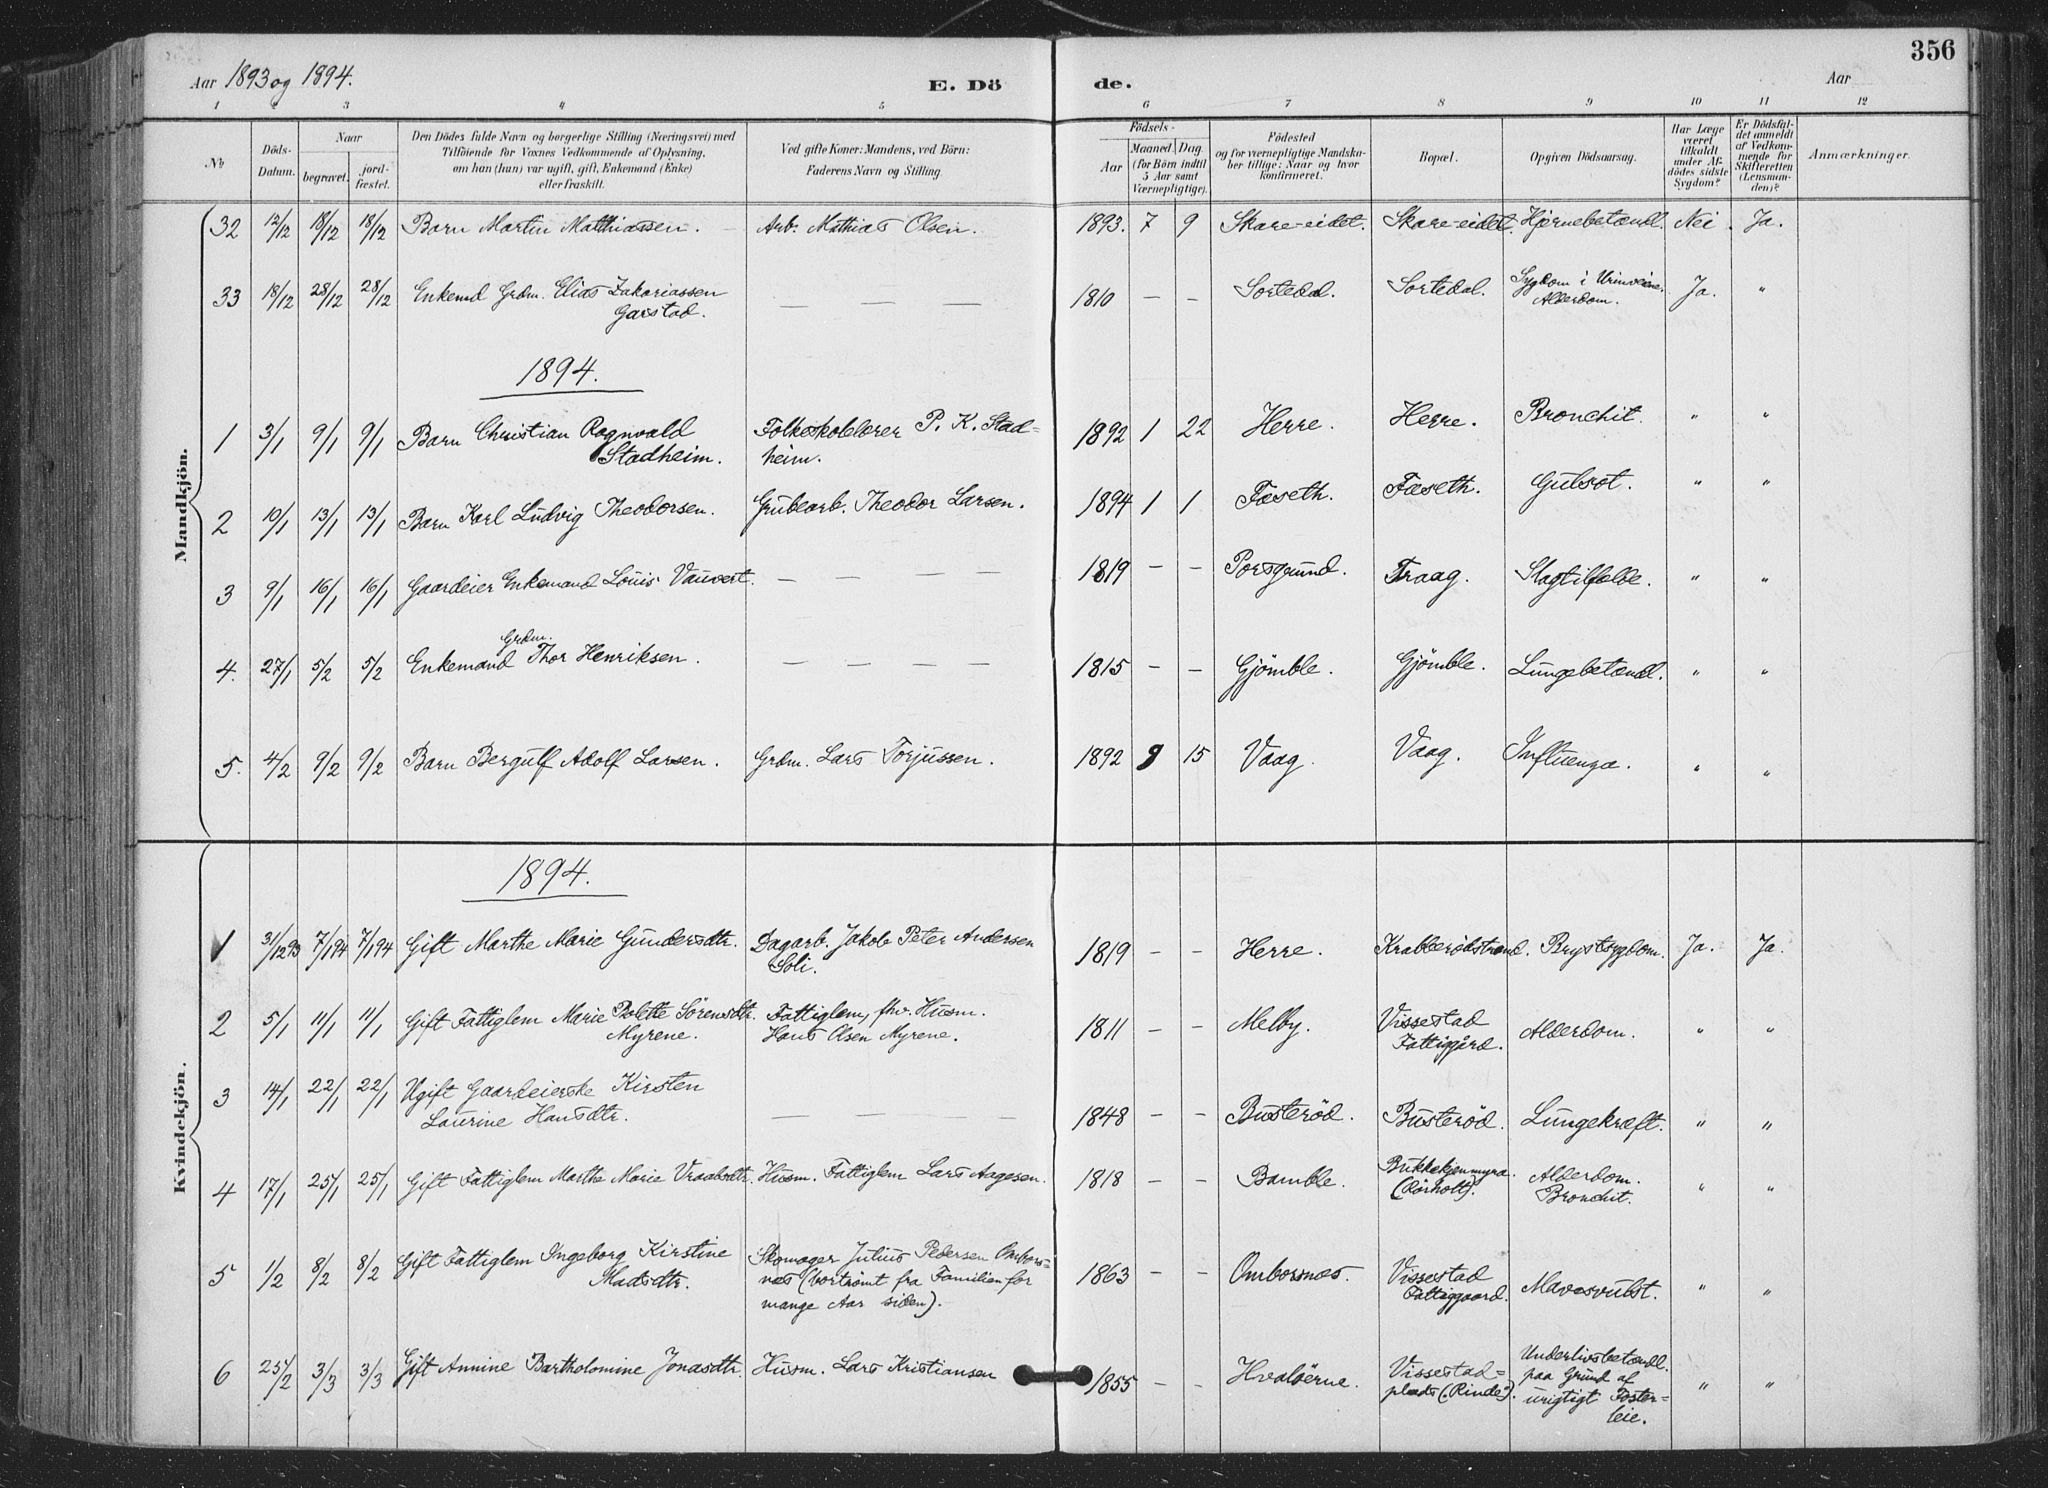 356
Aar 1893 og 1894. E. Dö de. Aar
1 2 3 4 5 6 7 8 9 10 11 12
No
Döds-Datum.
Naar
begravet.
jord-fæstet.
Den Dödes fulde Navn og borgerlige Stilling (Næringsvei) med
Tilföiende for Voxnes Vedkommende af Oplysning,
om han (hun) var ugift, gift, Enkemand (Enke)
eller fraskilt.
Ved gifte Koner: Mandens, ved Börn:
Faderens Navn og Stilling.
Födsels-
Aar
Maaned. Dag.
(for Börn indtil
5 Aar samt
Værnepligtige).
Födested
og for værnepligtige Mandska-
ber tillige: Naar og hvor
konfirmeret.
Bopæl.
Opgiven Dödsaarsag.
Har Læge
været
tilkaldt
under Af-
dödes sidste
Sygdom?
Er Dödsfal-
det anmeldt
af Vedkom-
mende for
Skifteretten
(Lensman-
den)?
Anmærkninger.
Mandkjön.
32 12/12 18/12 18/12 Barn Martin Matthiassen. Arb. Mathias Olsen. 1893. 7 9 Skare-eidet. Skare-eidet. Hjernebetændl. Nei. Ja.
33 18/12 28/12 28/12 Enkemd Grdm. Elias Zakariassen — — — 1810 — — Sortedal. Sortedal. Sygdom i Urinveiene.
Garstad. Alderdom. Ja. "
1894.
1 3/1 9/1 9/1 Barn Christian Rognvald Folkeskolelærer P. K. Stad= 1892 1 22 Herre. Herre. Bronchit. " "
Stadheim. heim.
2 10/1 13/1 13/1 Barn Karl Ludvig Theodorsen. Grubearb. Theodor Larsen. 1894 1 1 Fæseth. Fæseth. Gulsot. " "
3 9/1 16/1 16/1 Gaardeier Enkemand Louis Vauvert. — — — 1819 — — Porsgrund. Traag. Slagtilfælde. " "
Grdm.
4. 27/1 5/2 5/2 Enkemand Thor Henriksen. — — — 1815 — — Gjömble. Gjömble. Lungebetændl. " "
5. 4/2 9/2 9/2 Barn Bergulf Adolf Larsen. Grdm. Lars Torjussen. 1892 9 15 Vaag. Vaag. Influenza. " "
Kvindekjön.
1894.
1 31/12 93 7/1 94 7/1 94 Gift Marthe Marie Gundersdtr. Dagarb. Jakob Peter Andersen 1819 — — Herre. Krabberødstrand. Brystsygdom. Ja. Ja.
Soli.
2 5/1 11/1 11/1 Gift Fattiglem Marie Bolette Sörensdtr. Fattiglem, fhv. Husm. 1811 — — Melby. Vissestad Alderdom. " "
Myrene. Hans Olsen Myrene. Fattiggård.
3 14/1 22/1 22/1 Ugift Gaardeierske Kirsten
Laurine Hansdtr. — — — 1848 — — Busterød. Busterød. Lungekræft. " "
4 17/1 25/1 25/1 Gift Fattiglem Marthe Marie Vraalsdtr. Husm. Fattiglem Lars Aagesen. 1818 — — Bamble. Bukkekjenmyra. Alderdom. " "
(Rörholt). Bronchit.
5 1/2 8/2 8/2 Gift Fattiglem Ingeborg Kirstine Skomager Julius Pedersen Ombors= 1863 — — Ombornæs. Vissestad Mavesvulst. " "
Madsdtr. næs (bortrömt fra Familien for Fattiggaard.
mange Aar siden).
6 25/2 3/3 3/3 Gift Annine Bartholomine Jonasdtr. Husm. Lars Kristiansen 1855 — — Hvalöerne. Vissestad= Underlivsbetændl. " "
plads ("Rinde"). paa Grund af
urigtigt Foster=
leie.